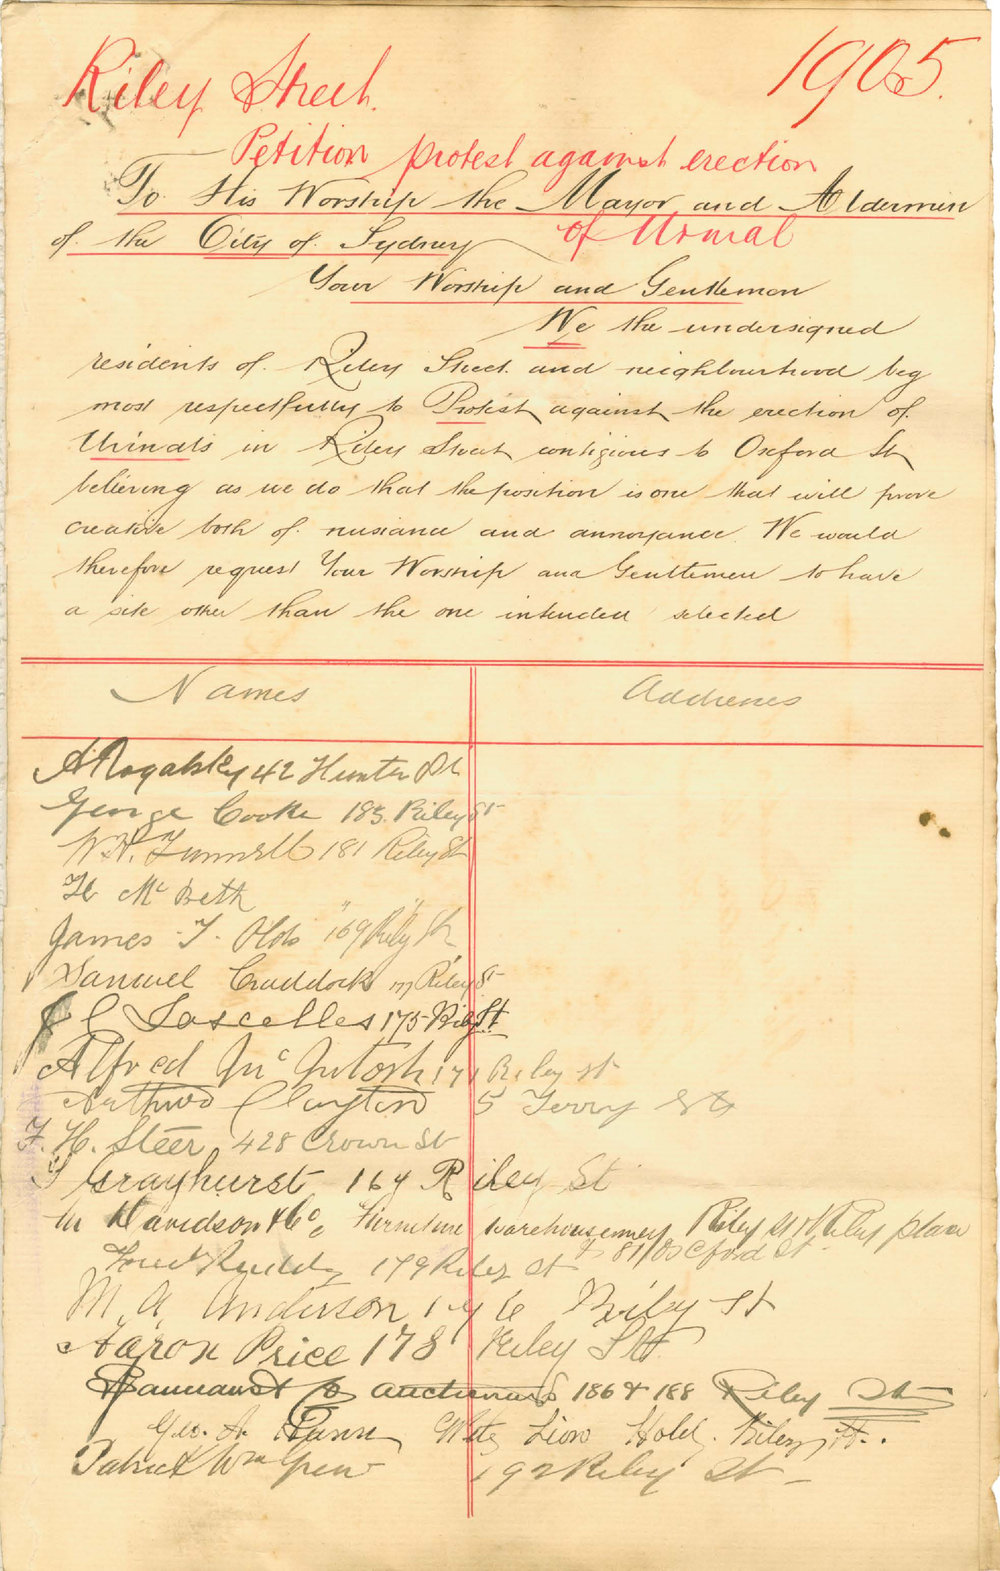 Riley Street.
1905.
Petition protest against erection
of Urinal
To His Worship the Mayor and Aldermen
of the City of Sydney
Your Worship and Gentlemen
We the undersigned
residents of Riley Street and neighbourhood beg
most respectfully to Protest against the erection of
Urinals in Riley Street contigious to Oxford St
believing as we do that the position is one that will prove
creative both of nusiance and annoyance. We would
therefore request Your Worship and Gentlemen to have
a site other than the one intended selected
Names Addresses
A Rogalsky 42 Hunter St
George Cooke 183. Riley St
W.H. Funnell 181 Riley St
Mc Beth
James T. Olds 169 Riley St
Samuel Craddock Riley St
Lascelles 175 Riley St
Alfred McIntosh 171 Riley St
Arthur Clayton 5 Terry St
F. H. Steer 428 Crown St
Grayhurst 164 Riley St
Davidson & Co, Furniture warehousemen Riley St & Riley place
& 81 Oxford St
179 Riley St
M. A. Anderson 176 Riley St
Aaron Price 178 Riley St
Co auctioneers 186 & 188 Riley St
Geo. A. White Lion Hotel. Riley St.
Patrick Wm 192 Riley St